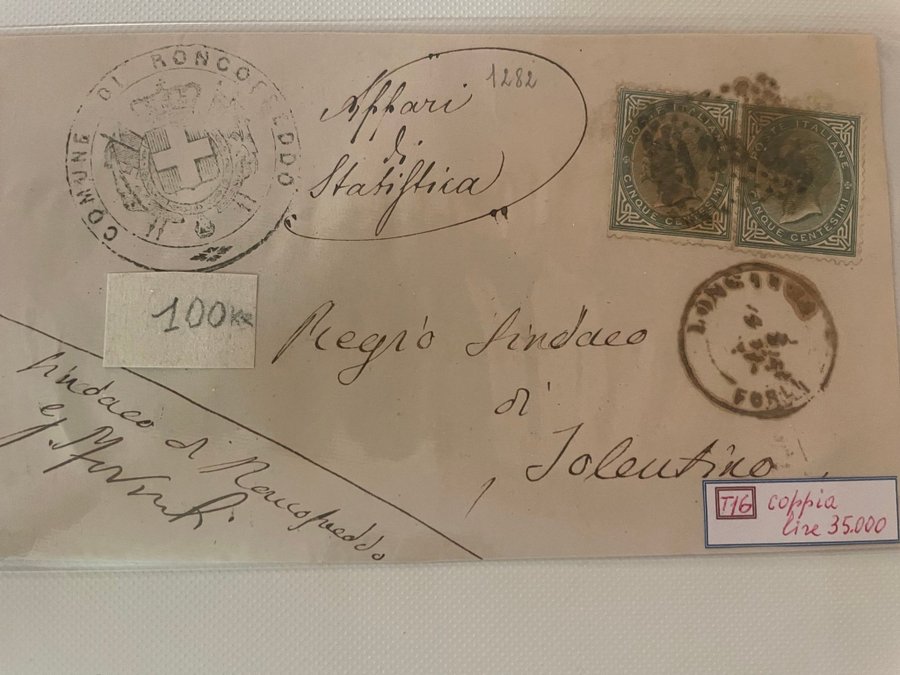 COMUNE DI RONCOFREDDO
1282
Affari
di
Statistica
POSTE ITALIANE
CINQUE CENTESIMI
POSTE ITALIANE
CINQUE CENTESIMI
100
Regio Sindaco
di
Tolentino
FORLI
Sindaco di Roncofreddo
T16 coppia
lire 35.000